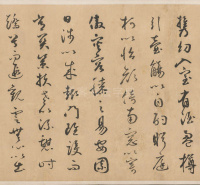 攜幼入室有酒盈樽
引壺觴以自酌眄庭
柯以怡顏倚南窗以寄
傲審容膝之易安園
日涉以成趣門雖設而
常關策扶老以流憩時
矯首而遐觀雲無心以出